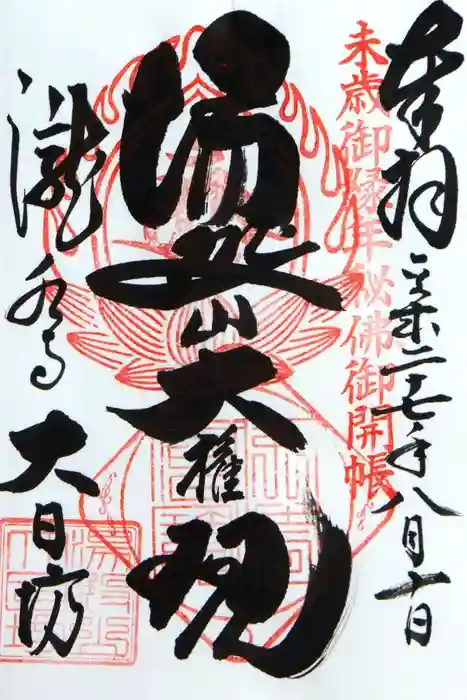 奉拝 平成二七年八月十日
未歳御縁年秘佛御開帳
湯殿山大権現
瀧水寺 大日坊